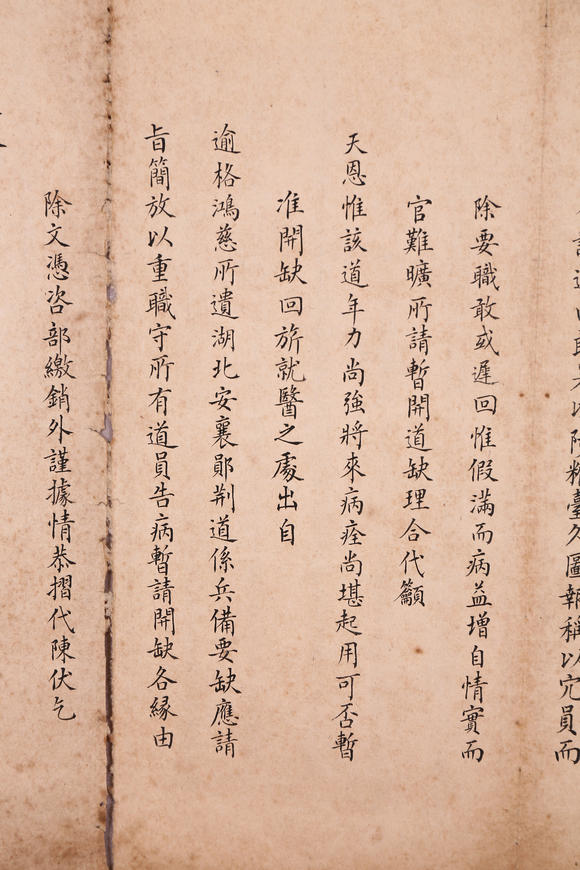 圖報稱以宂員而
除要職敢或遲回惟假滿而病益增自情實而
官難曠所請暫開道缺理合代籲
天恩惟該道年力尚強將來病痊尚堪起用可否暫
准開缺回旂就醫之處出自
逾格鴻慈所遺湖北安襄鄖荆道係兵備要缺應請
旨簡放以重職守所有道員告病暫請開缺各緣由
除文憑咨部繳銷外謹據情恭摺代陳伏乞